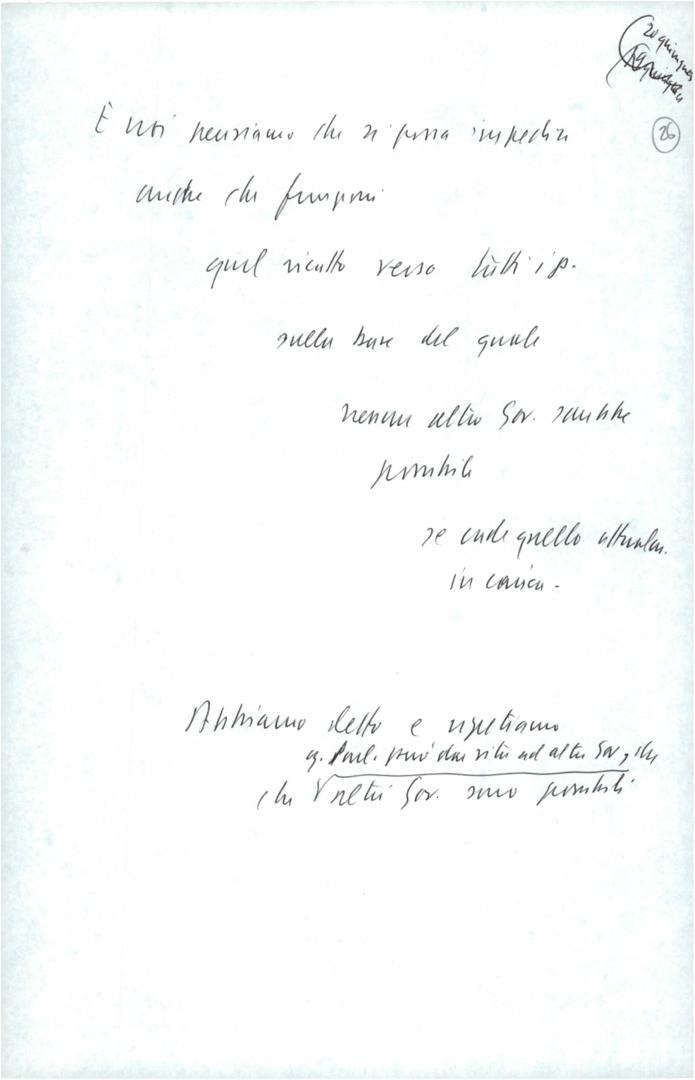 20 quinques
26
E noi pensiamo che si possa impedire
anche che funzioni
quel ricatto verso tutti i p.
sulla base del quale
nessun altro Gov. sarebbe
possibile
se cade quello attualm.
in carica.
Abbiamo detto e ripetiamo
q. Parl. può dar vita ad altri Gov, che
che altri Gov. sono possibili